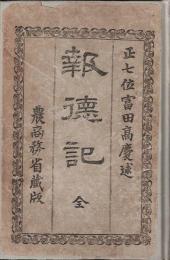 正七位富田高慶述
報德記
全
農商務省藏版